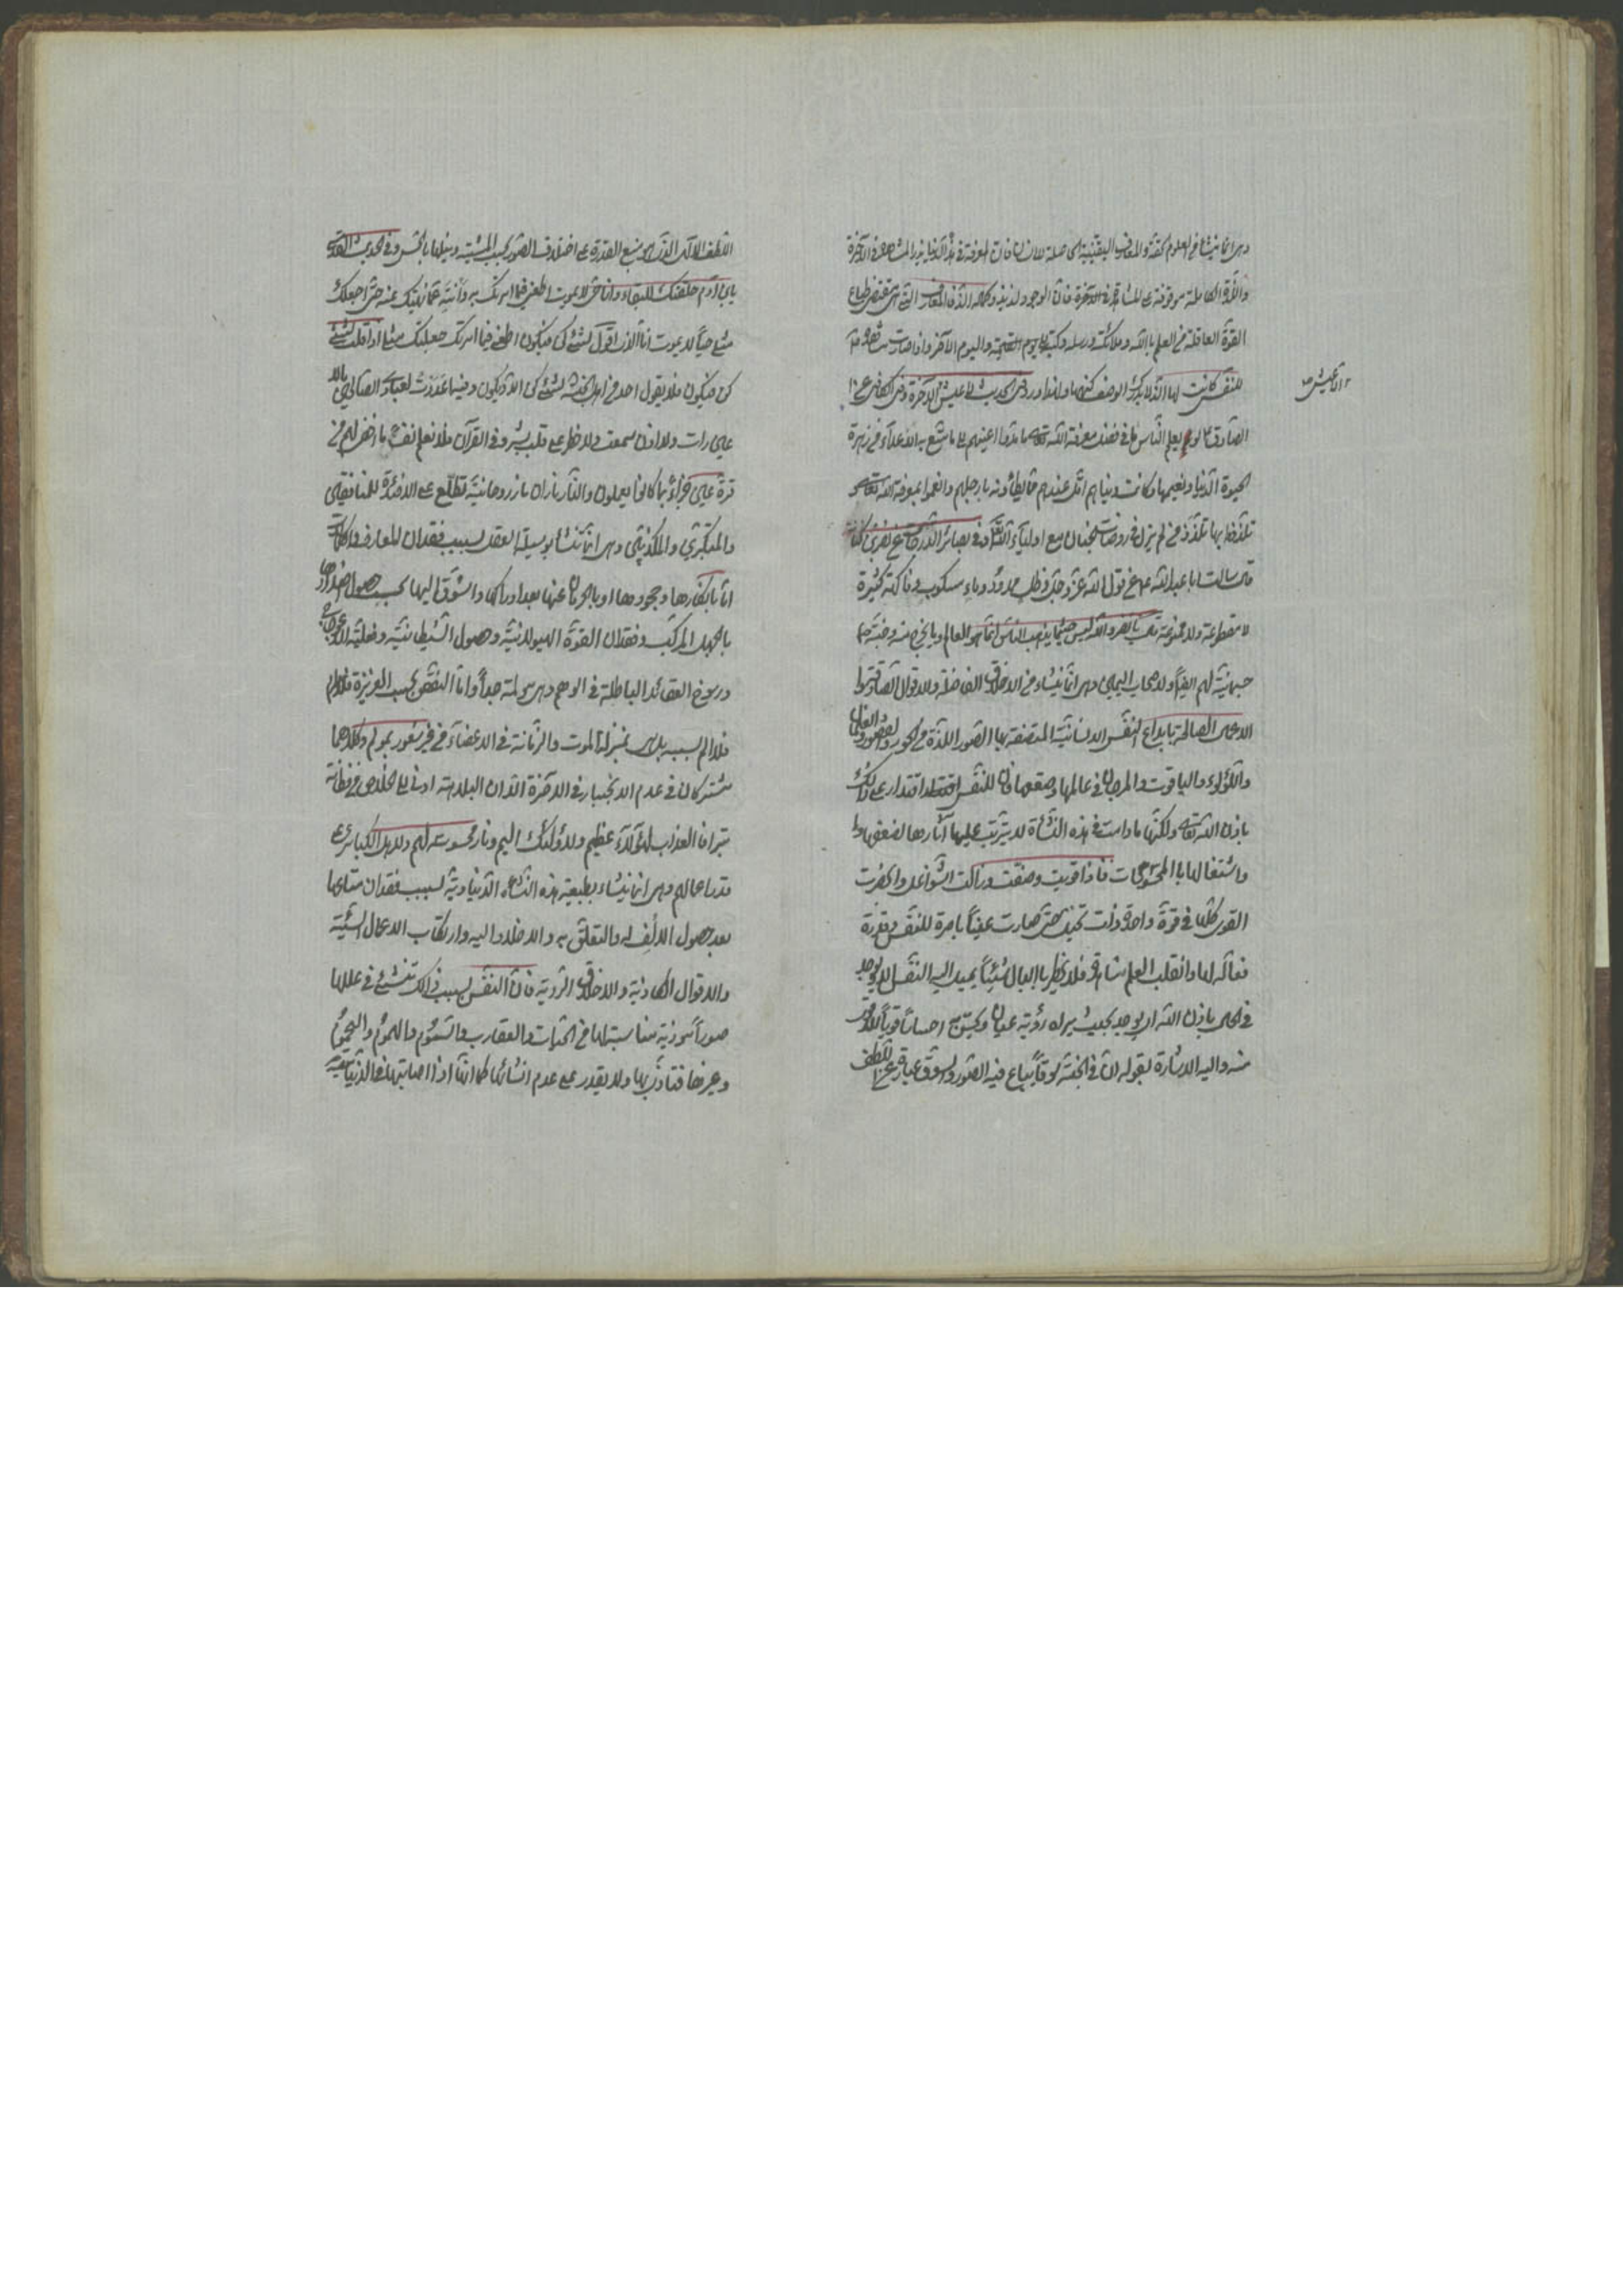 وهي انما ينشأ من العلوم الحقة والمعارف اليقينية الحاصلة للانسان فان المعرفة في هذه الدنيا بذر المشاهدة في الآخرة
واللذة الكاملة موقوفة على المشاهدة في الآخرة فان الوجود لذيذ وكماله الذ فالمعارف التي هي مقتضى طباع
القوة العاقلة من العلم بالله وملائكته ورسله وكتبه واليوم الآخر واذا صارت مشاهدة
للنفس كانت لها لذة لا يدرك الوصف كنهها ولهذا ورد في الحديث لا عيش الا عيش الآخرة وفي الكافي عن
الصادق لو يعلم الناس ما في فضل معرفة الله تعالى ما مدوا اعينهم الى ما متع به الاعداء من زهرة
الحيوة الدنيا ونعيمها وكانت دنياهم اقل عندهم مما يطأونه بارجلهم وانعموا بمعرفة الله تعالى
وتلذذوا بها تلذذ من لم يزل في روضات الجنان مع اولياء الله وفي بصائر الدرجات عن نصر بن
قال سالت ابا عبد الله عن قول الله عز وجل وظل ممدود وماء مسكوب وفاكهة كثيرة
لا مقطوعة ولا ممنوعة قال يا نصر والله ليس حيثما يذهب الناس انما هو العالم وما يخرج منه وجنة
جسمانية لهم ايضا ولاصحاب اليمين وهي انما ينشاء من الاخلاق الفاضلة والاقوال الصادقة
الاعمال الصالحة بابداع النفس الانسانية المتصفة بها الصور اللذة من الحور والقصور والغلمان
واللؤلؤ والياقوت والمرجان في عالمها وصقعها فان للنفس اقتدار على ذلك
باذن الله تعالى ولكنها مادامت في هذه النشأة لا يترتب عليها آثارها لضعفها
واشتغالها بالمحسوسات فاذا قويت وصفت وزالت الشواغل وانحصرت
القوى كلها في قوة واحدة صارت عينا باصرة للنفس وقدرة
فعالة لها وانقلب العلم مشاهدة فلا يخطر بالبال شيئا يميل اليه النفس الا يوجد
في الحال باذن الله اي يوجد بحيث يراه رؤية عيان احساسا قويا لا اقوى
منه واليه الاشارة بقوله ان في الجنة سوقا يباع فيه الصور والسوق عبارة عن اللطف
الا عيش صح
اللطف الالهي الذي هو منبع القدرة على اختلاف الصور بحسب المشية ونيلها بالحس وفي الحديث القدسي
يا بن آدم خلقتك للبقاء وانا حي لا يموت اطعني فيما امرتك به وانته عما نهيتك عنه حتى اجعلك
مثلي حيا لا يموت انا الذي اقول لشئ كن فيكون اطعني فيما امرتك جعلتك مثلي اذا قلت لشئ
كن فيكون فلا يقول احد من اهل الجنة لشئ كن الا ويكون وفيها اعددت لعبادي الصالحين ما لا
عين رات ولا اذن سمعت ولا خطر على قلب بشر وفي القرآن فلا تعلم نفس ما اخفى لهم من
قرة عين جزاء بما كانوا يعملون والنار ناران نار روحانية تطلع على الافئدة للمنافقين
والمتكبرين والمكذبين وهي انما تنشأ بوسيلة العقد بسبب فقدان المعارف والكمالات
اما بانكارها وجحودها او بالحرمان عنها بعد ادراكها والشوق اليها بحسب حصول اضدادها
بالجهل المركب وفقدان القوة الهيولانية وحصول الشيطانية وفعلية الاعوجاج
ورسوخ العقائد الباطلة في الوهم وهي مولمة جدا واما النقص بحسب الغريزة
فلا الم بسببه بل هي بمنزلة الموت والزمانة في الاعضاء من غير شعور بمولم وكلاهما
مشتركان في عدم الانجبار في الآخرة الا ان البلاهة ادنى الى الخلاص من فطانة
بتراء فالعذاب لهؤلاء عظيم ولاولئك اليم ونار محسوسة لهم ولاهل الكبائر على
قدر اعمالهم وهي انما ينشاء بطبيعة هذه النشأة الدنياوية بسبب فقدان متاعها
بعد حصول الالف له والتعلق به والاخلاد اليه وارتكاب الاعمال السيئة
والاقوال الكاذبة والاخلاق الردية فان النفس بسبب ذلك تنشئ في عالمها
صورا موذية مناسبة لها من الحيات والعقارب والسموم والحموم واليحموم
وغيرها فتتاذى بها ولا يقدر على عدم انشائها كما انها اذا اصابتها في الدنيا